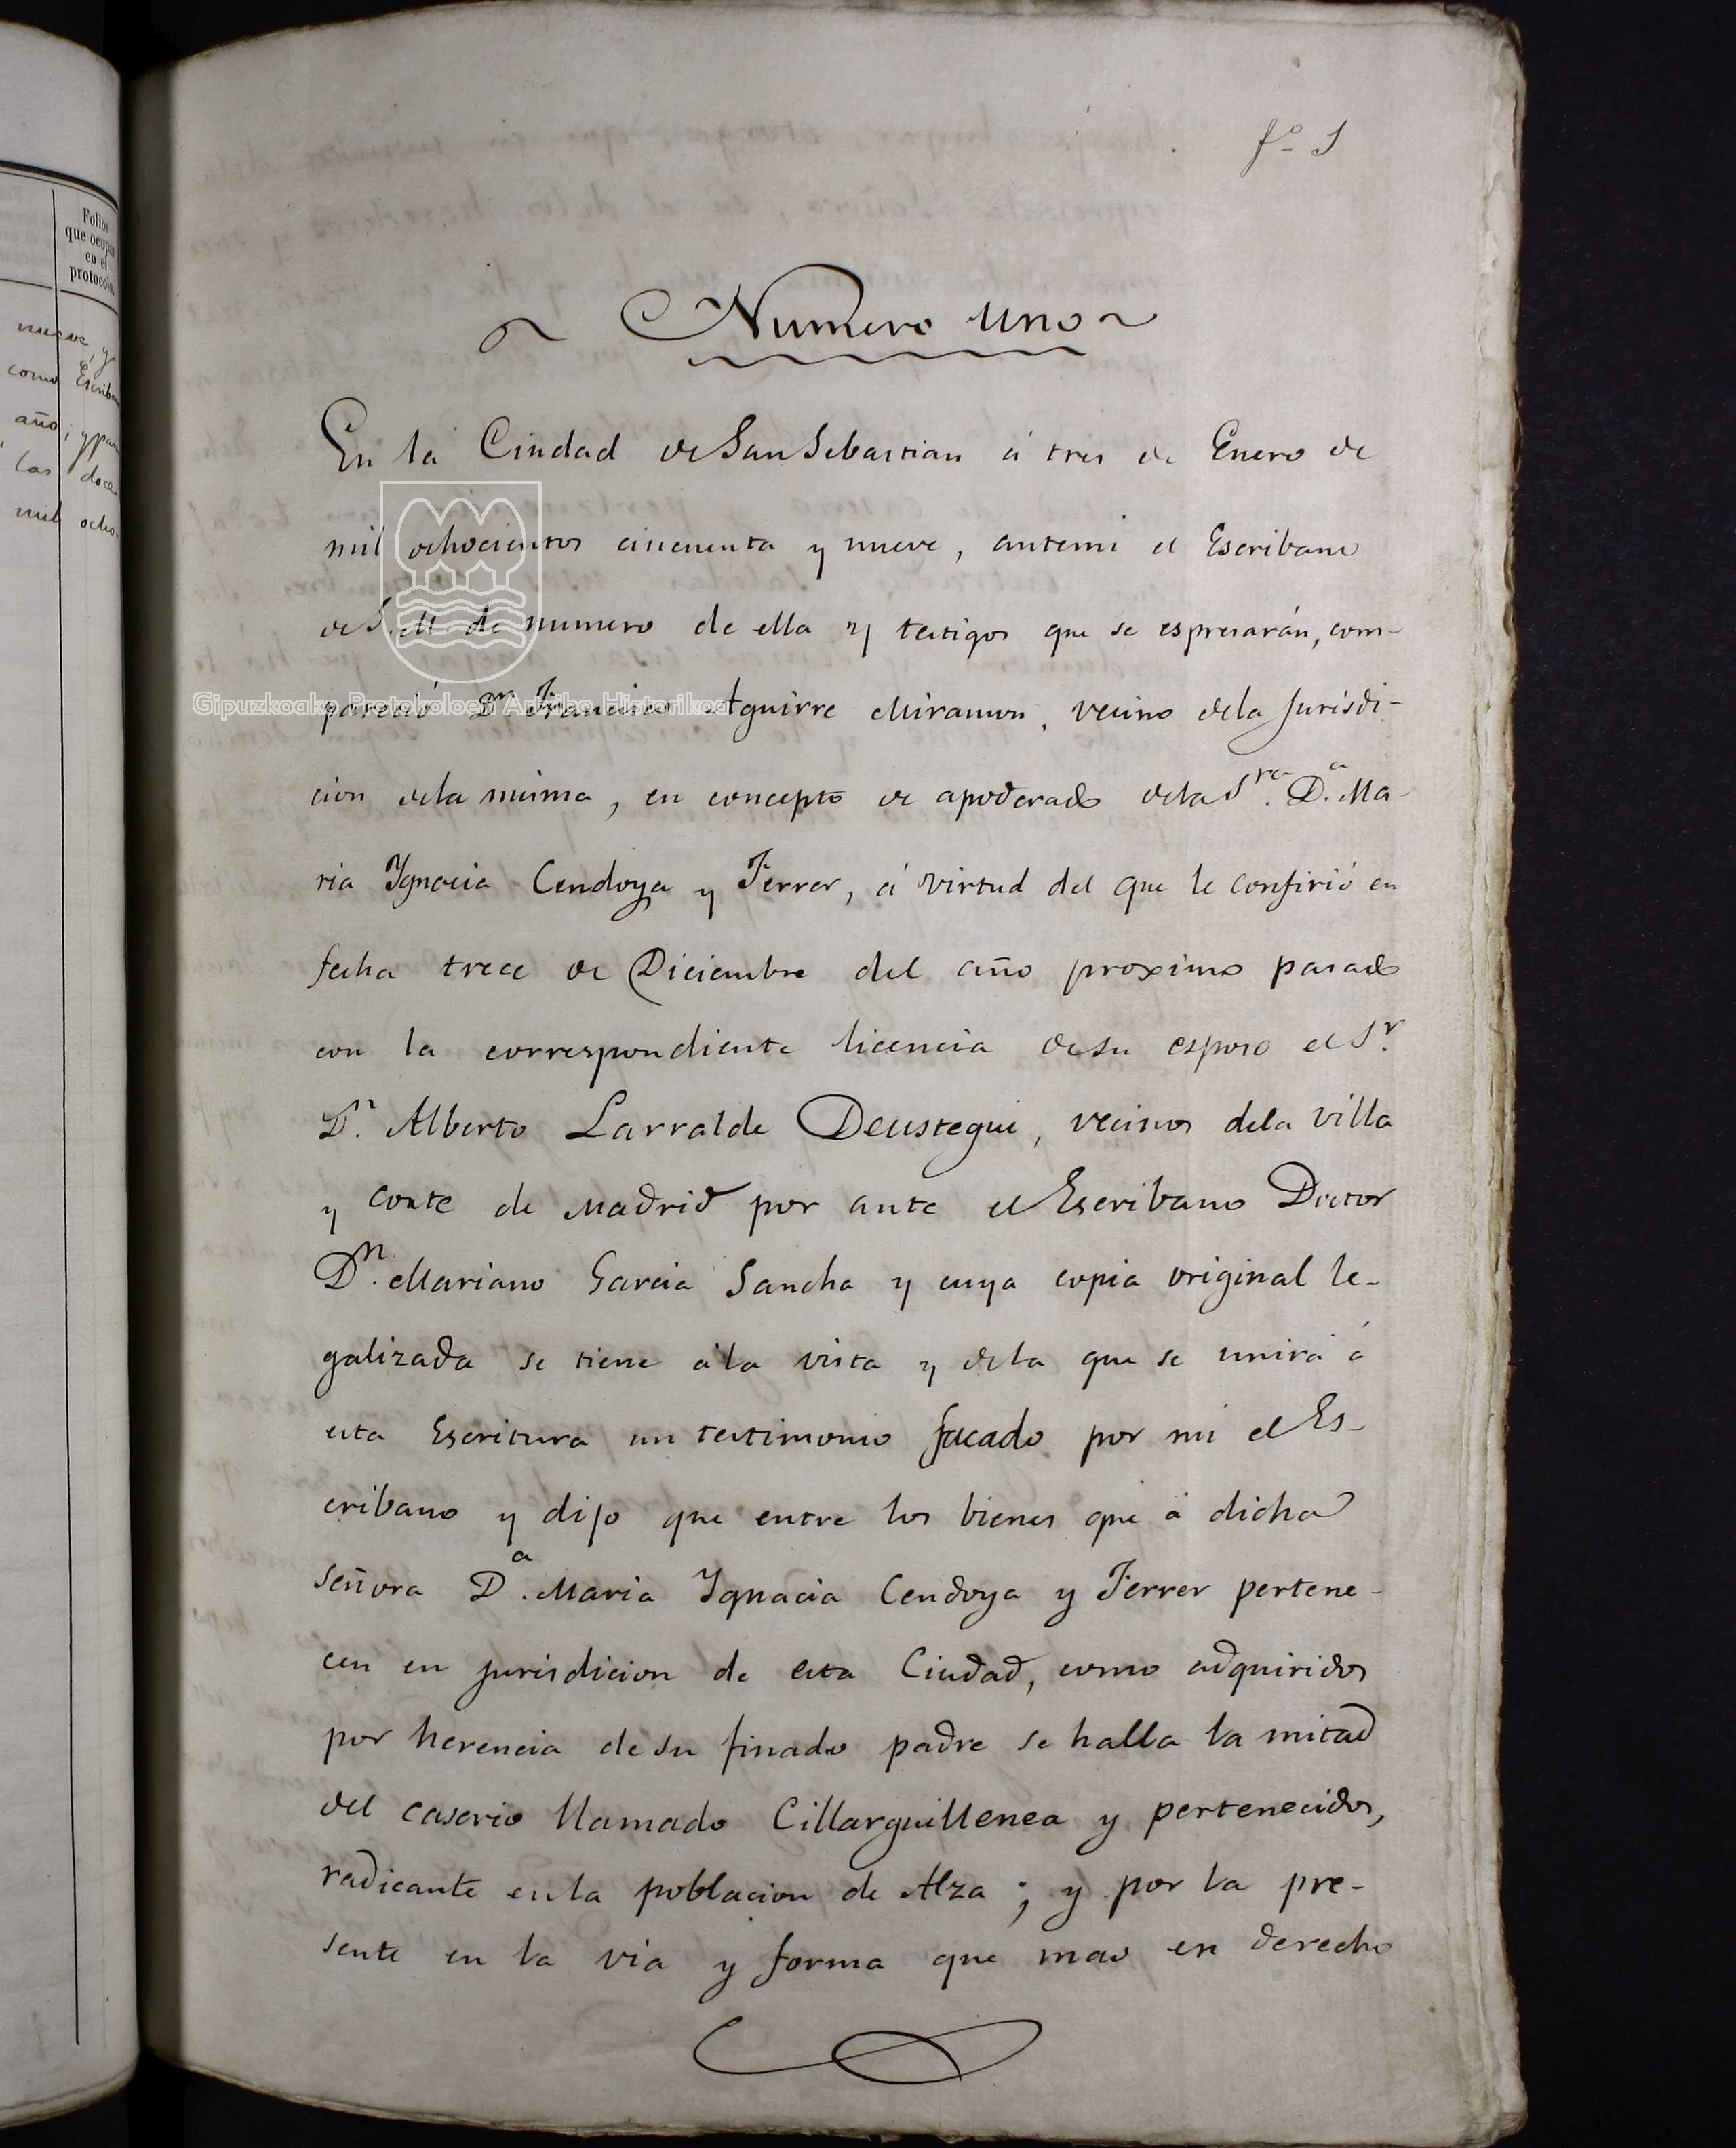 Folios
que ocupan
en el
protocolo.
nueve, y
como Escriba
año; y pa
las doce
mil ocho
fº 1
Numero uno
En la Ciudad de San Sebastian á tres de Enero de
mil ochocientos cincuenta y nueve, antemi el Escribano
de S. M. de numero de ella y testigos que se espresarán, com-
pareció Dn. Francisco Aguirre Miramon, vecino dela Jurisdi-
cion dela misma, en concepto de apoderado dela Sra. Da. Ma-
ria Ygnacia Cendoya y Ferrer, á virtud del que le confirió en
fecha trece de Diciembre del año proximo pasado
con la correspondiente licencia de su esposo el Sr.
Dn. Alberto Larralde Deustegui, vecinos dela villa
y corte de Madrid por ante el Escribano Doctor
Dn. Mariano Garcia Sancha y cuya copia original le-
galizada se tiene ála vista y dela que se unirá á
esta Escritura un testimonio sacado por mi el Es-
cribano y dijo que entre los bienes que á dicha
señora Da. Maria Ygnacia Cendoya y Ferrer pertene-
cen en jurisdicion de esta Ciudad, como adquiridos
por herencia de su finado padre se halla la mitad
del caserio llamado Cillarguillenea y pertenecidos,
radicante en la poblacion de Alza; y por la pre-
sente en la via y forma que mas en derecho
Gipuzkoako Protokoloen Artxibo Historikoa